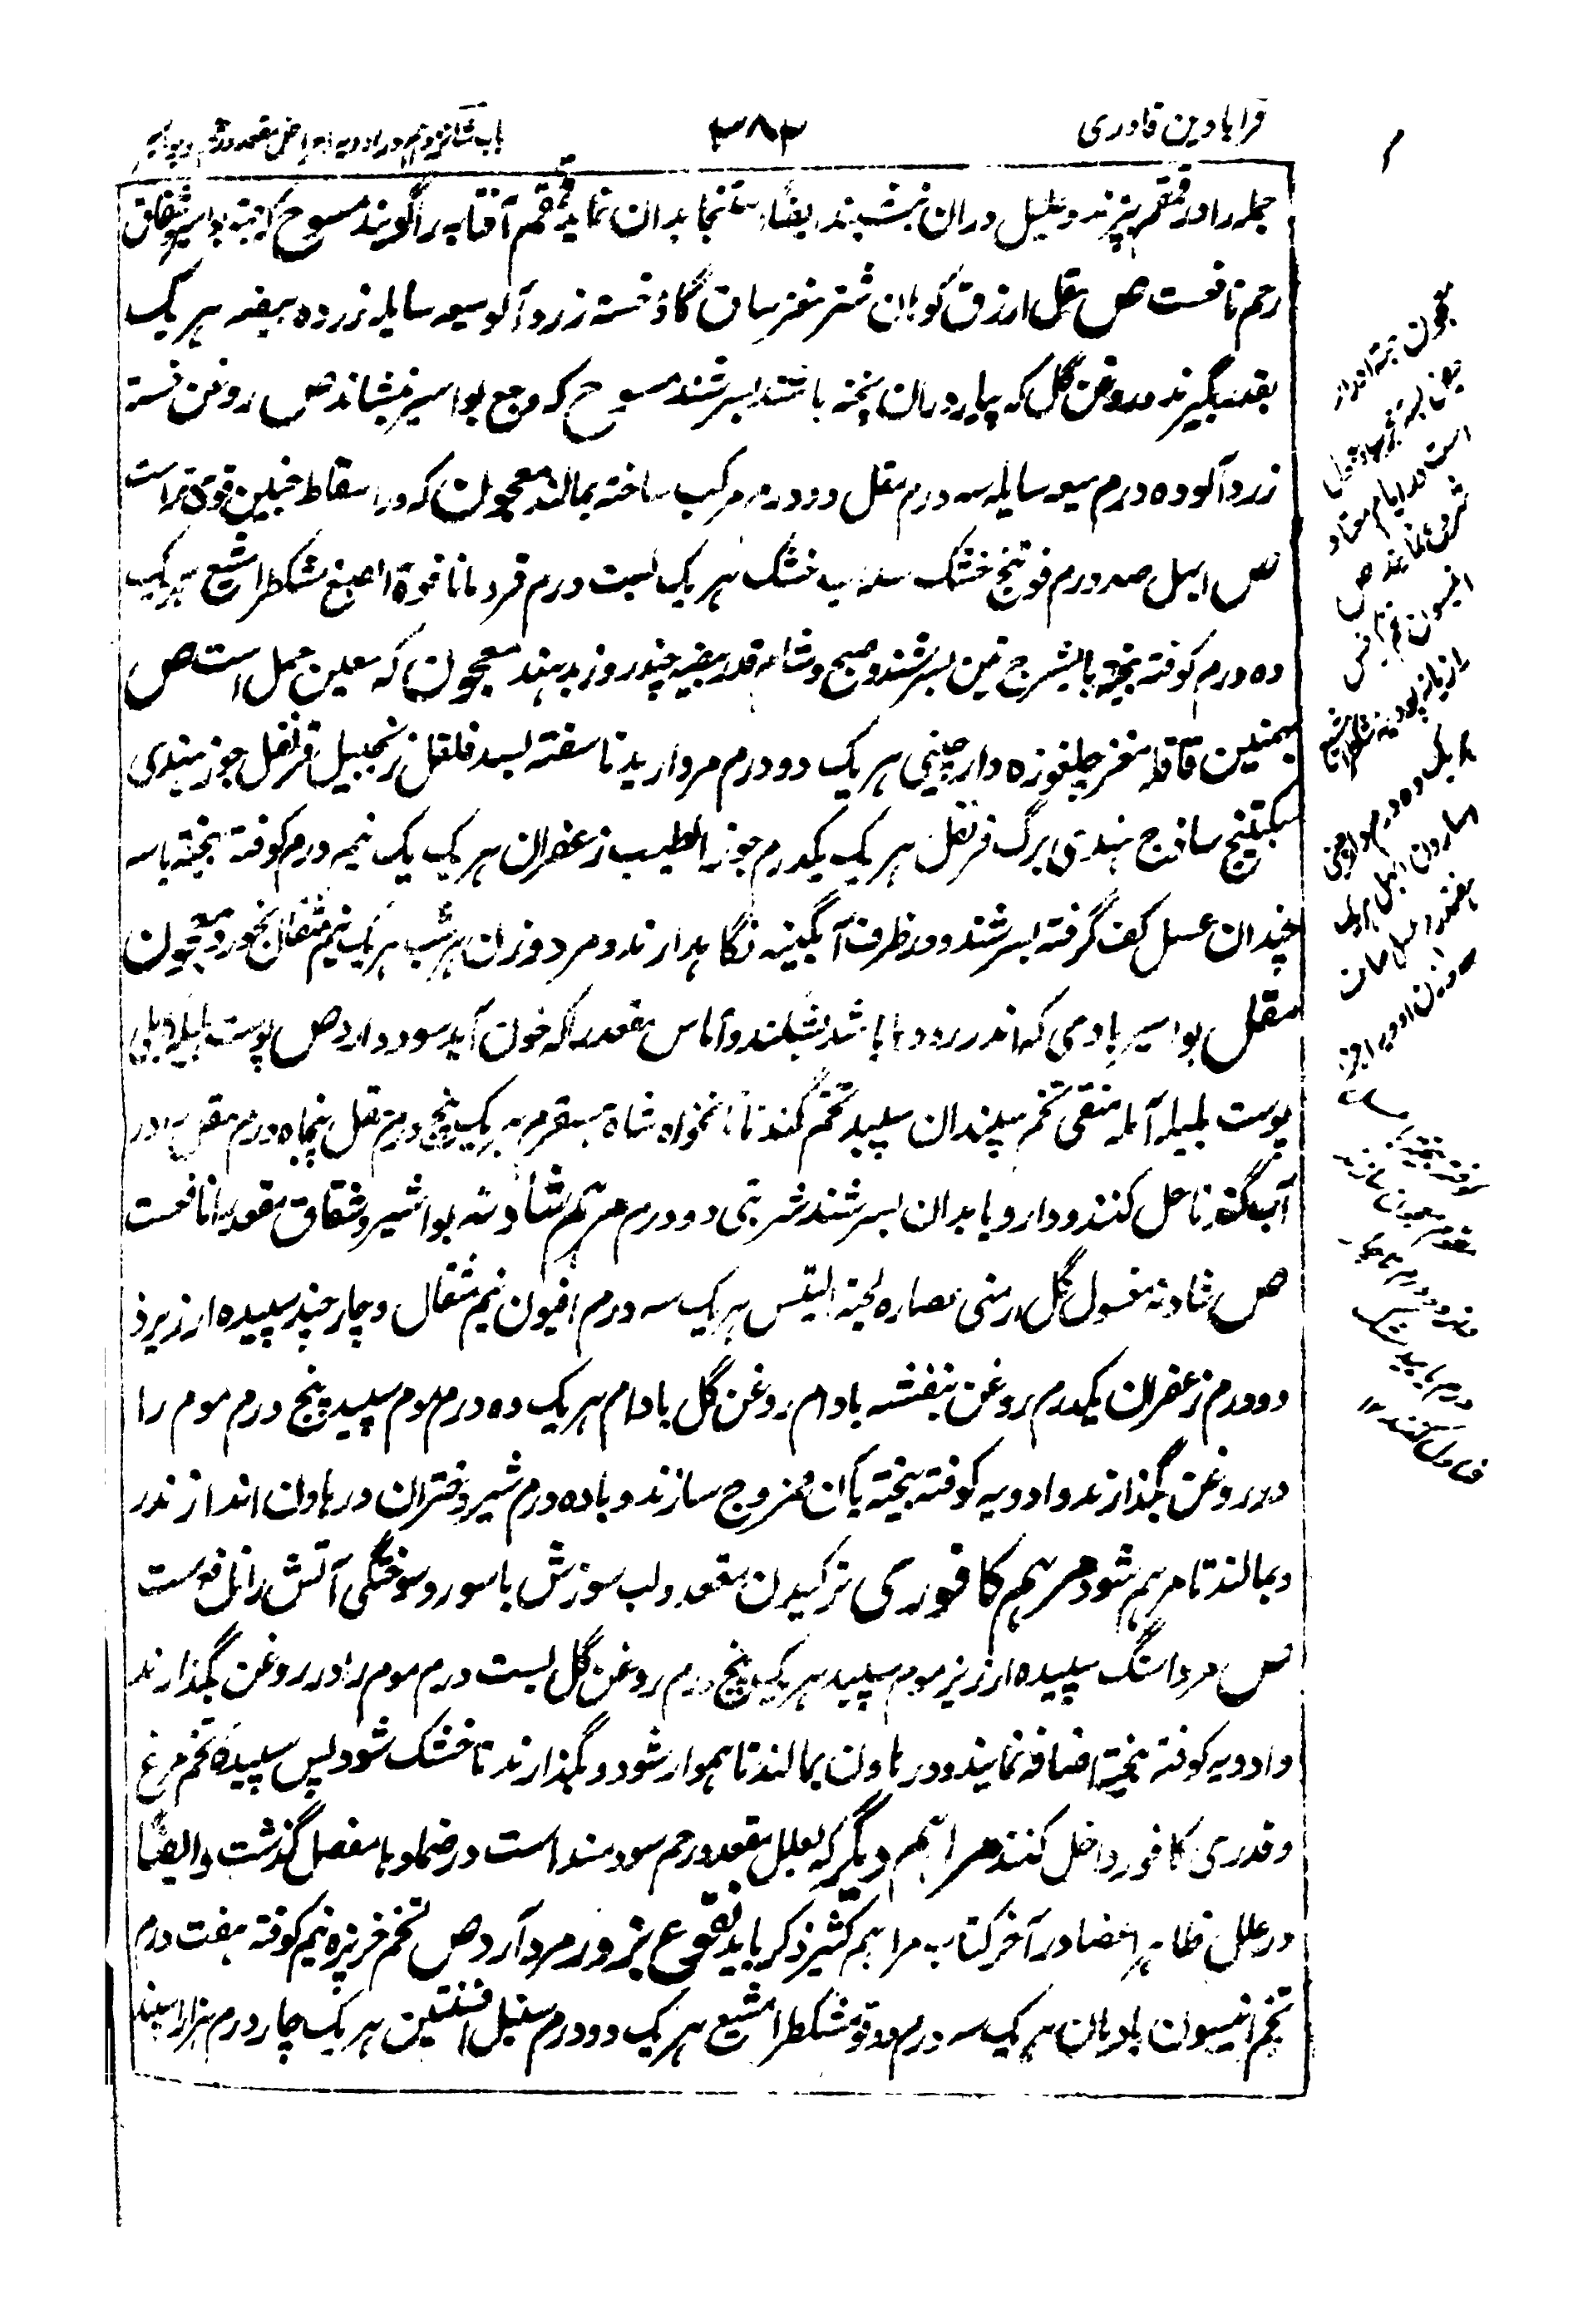 قرابادین قادری
۳۸۳
باب شانزدهم در ادویه امراض مقعد و رحم و بواسیر
جمله را در قمقمه بپزند و علیل دران بنشیند ایضاً استنجا بدان نماید قمقم آفتابه را گویند مسوح که جهته بواسیر و شقاق
رحم نافعست ص مقل ارزق کوهان شتر مغز ساق گاؤ خسته زردآلو میعه سایله زرده بیضه هر یک
بقدر بگیرند در روغن گل که پیاز دران پخته باشند بسرشند مسوح که وجع بواسیر بنشاند ص روغن خسته
زردآلو ده درم میعه سایله سه درم مقل دو درم مرکب ساخته بمالند معجون که در اسقاط جنین قوی تراست
ص ابهل صد درم فوتنج خشک سداب خشک هر یک بست درم قردمانا فوة الصبغ مشکطرامشیع هر یک
ده درم کوفته بیخته با بشیرج تین بسرشند و صبح و شام قدر بیضه چند روز بدهند معجون که معین حمل است ص
بهمنین قاقله مغز چلغوزه دارچینی هر یک دو درم مروارید ناسفته بسد فلفل زنجبیل قرنفل جوز هندی
سکبینج ساذج هندی برگ قرنفل هر یک یکدرم جوز الطیب زعفران هر یک یک نیم درم کوفته بیخته با سه
چندان عسل کف گرفته بسرشند و در ظرف آبگینه نگاهدارند و مرد و زن هر شب هر یک نیم مثقال بخورد معجون
مقل بواسیر بادمی که اندر رودها باشد بشکند و آماس مقعد را که خون آید سود دارد ص پوست هلیله کابلی
پوست بلیله آمله منقی تخم سپندان سپید تخم گندنا نانخواه شاه سفرم هر یک پنج درم مقل پنجاه درم مقل را در
آب گندنا حل کنند و دارو با بدان بسرشند شربتی دو درم مرهم شادنه بواسیر و شقاق مقعد را نافعست
ص شادنه مغسول گل ارمنی عصاره لحیة التیس هر یک سه درم افیون نیم مثقال و چار چند سپیده ارزیز
دو درم زعفران یکدرم روغن بنفشه بادام روغن گل بادام هر یک ده درم موم سپید پنج درم موم را
در روغن بگذارند و ادویه کوفته بیخته با آن ممزوج سازند و با ده درم شیر دختران در هاون اندازند
و بمالند تا مرهم شود مرهم کافوری ترکیدن مقعد و لب سوزش با سور و سوختگی آتش را نافعست
ص مرداسنگ سپیده ارزیز موم سپید هر یک پنج درم روغن گل بست درم موم را در روغن بگذارند
و ادویه کوفته بیخته اضافه نمایند و در هاون بمالند تا هموار شود و بگذارند تا خشک شود پس سپیده تخم مرغ
و قدری کافور داخل کنند مراهم دیگر که بعلل مقعد و رحم سودمند است در ضمادها مفصل گذشت و ایضاً
در علل ظاهر اعضا در آخر کتاب مراهم کثیر ذکر یابد نقوع بزور مدر آرد ص تخم خرپزه نیم کوفته هفت درم
تخم انیسون بادیان هر یک سه درم دوقو مشکطرامشیع هر یک دو درم سنبل افسنتین هر یک چار درم هزار اسپند
معجون جهته ادرار
حیض
است در ایام معتاد
شروع نمایند ص
انیسون تخم کرفس